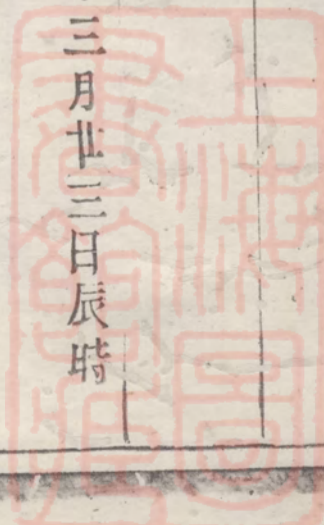 三月廿三日辰時
上海圖
書館藏